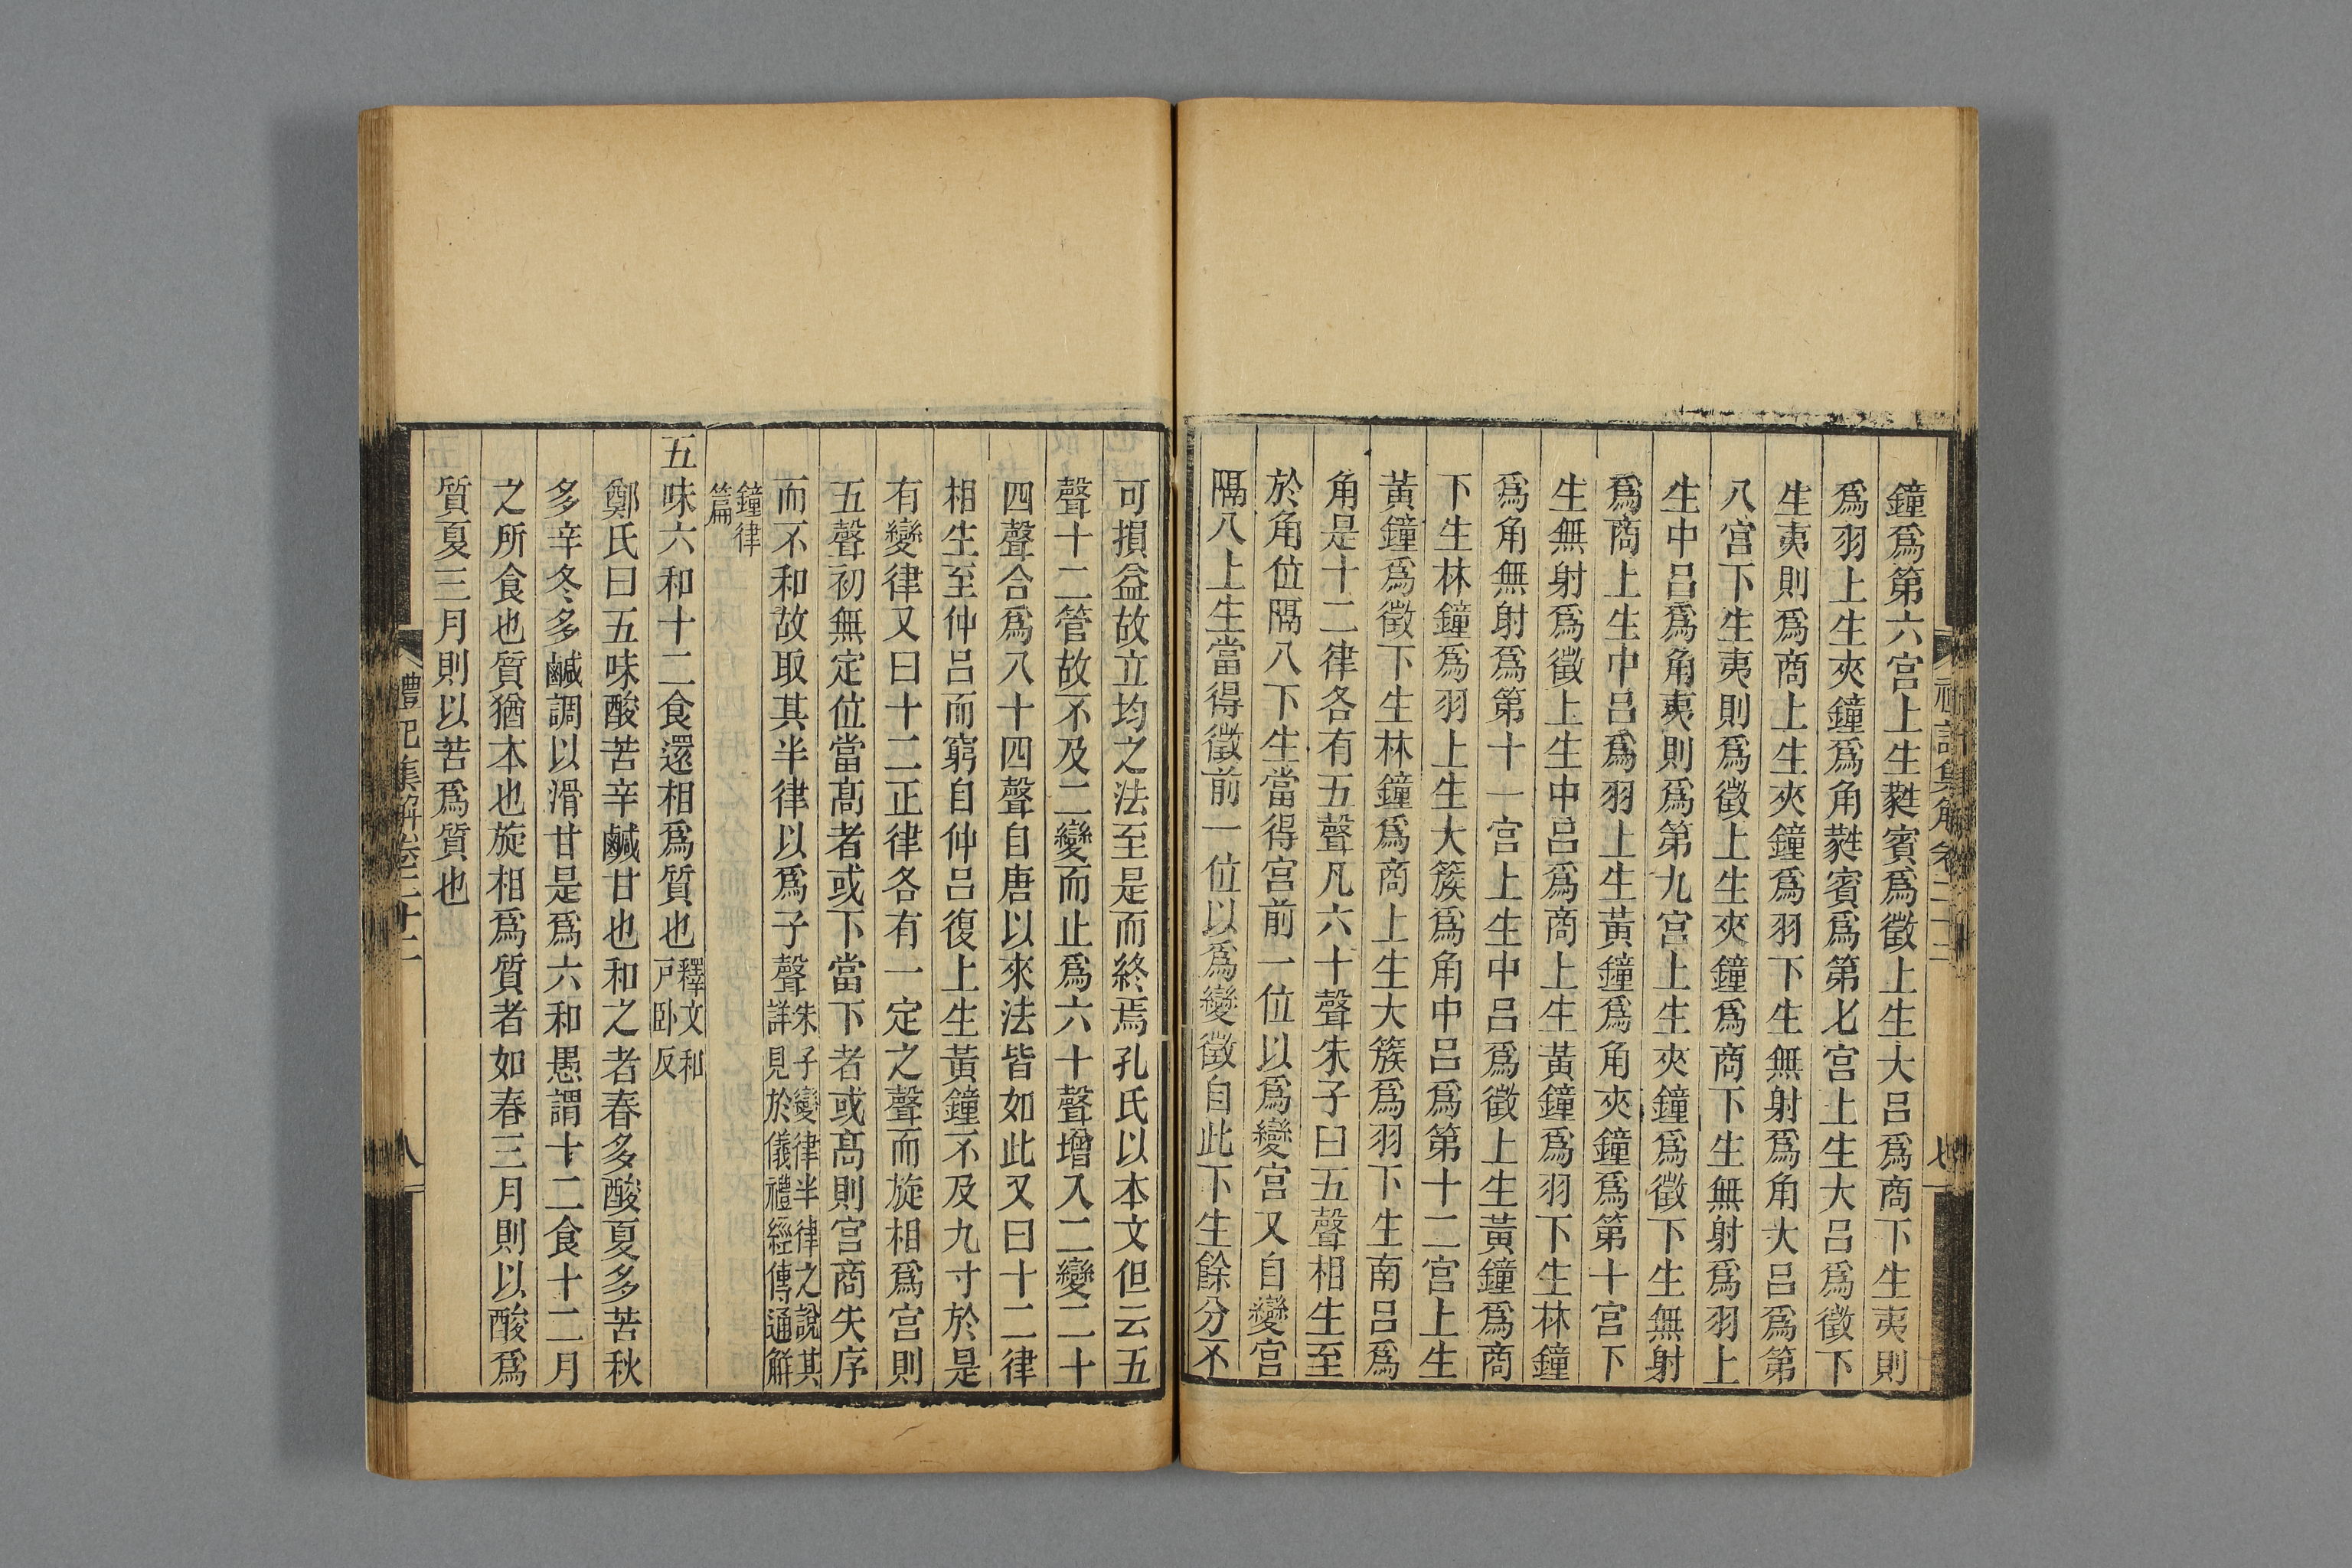 鐘爲第六宮上生蕤賓爲徵上生大呂爲商下生夷則
爲羽上生夾鐘爲角蕤賓爲第七宮上生大呂爲徵下
生夷則爲商上生夾鐘爲羽下生無射爲角大呂爲第
八宮下生夷則爲徵上生夾鐘爲商下生無射爲羽上
生中呂爲角夷則爲第九宮上生夾鐘爲徵下生無射
爲商上生中呂爲羽上生黃鐘爲角夾鐘爲第十宮下
生無射爲徵上生中呂爲商上生黃鐘爲羽下生林鐘
爲角無射爲第十一宮上生中呂爲徵上生黃鐘爲商
下生林鐘爲羽上生大簇爲角中呂爲第十二宮上生
黃鐘爲徵下生林鐘爲商上生大簇爲羽下生南呂爲
角是十二律各有五聲凡六十聲朱子曰五聲相生至
於角位隔八下生當得宮前一位以爲變宮又自變宮
隔八上生當得徵前一位以爲變徵自此下生餘分不
可損益故立均之法至是而終焉孔氏以本文但云五
聲十二管故不及二變而止爲六十聲增入二變二十
四聲合爲八十四聲自唐以來法皆如此又曰十二律
相生至仲呂而窮自仲呂復上生黃鐘不及九寸於是
有變律又曰十二正律各有一定之聲而旋相爲宮則
五聲初無定位當高者或下當下者或高則宮商失序
而不和故取其半律以爲子聲朱子變律半律之說其詳見於儀禮經傳通解
鐘律篇
五味六和十二食還相爲質也釋文和戸卧反
鄭氏曰五味酸苦辛鹹甘也和之者春多酸夏多苦秋
多辛冬多鹹調以滑甘是爲六和愚謂十二食十二月
之所食也質猶本也旋相爲質者如春三月則以酸爲
質夏三月則以苦爲質也
禮記集解卷二十二
八